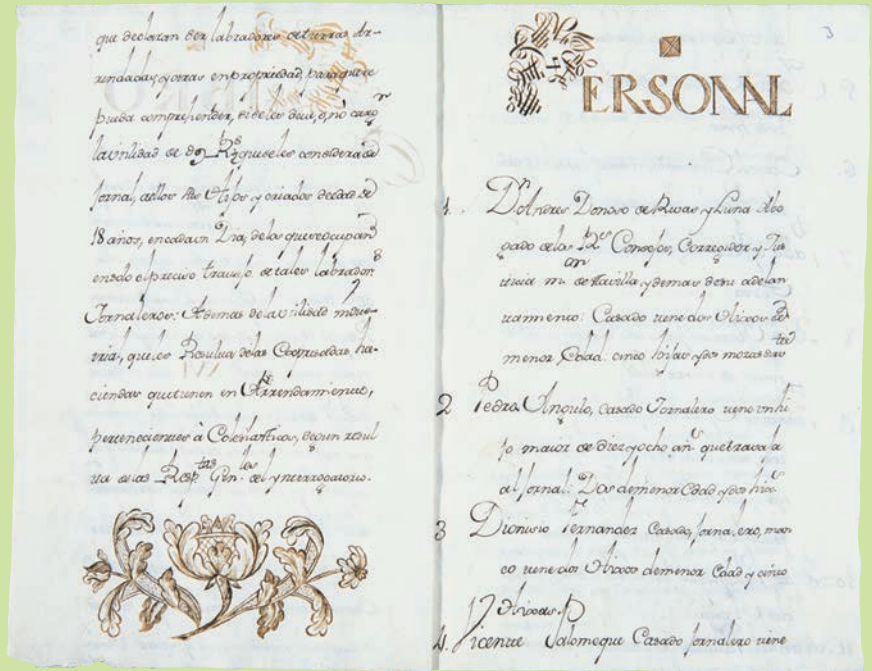 que declaran ser labradores de tierras Ar-
rendadas, y otras en propriedad, para que se
pueda comprehender, si se les deue, o, no cargr
la vtilidad de dos Rs que seles considera de
Jornal, a ellos sus Hijos y criados de edad de
18 años, en cada vn Dia, de los que se ocupan
en todo el preciso trauajo de tales labradors
Jornaleros: Ademas de la vtilidad indus-
trial, que les Resulta de las
ciendas que tienen en Arrendamiento,
pertenecientes à Eclesiasticos, segun resul
ta de las Resptas Genles del ynterrogatorio.
PERSONAL
1. Dn Andres Donoso de Rivas y Luna Abo
gado de los Rs Consejos, Corregidor y Jus
ticia mor de esta villa y demas de su adelan
tamiento: Casado tiene dos Hixos de
menor Edad: cinco hijas y dos mozas sirtes
2 Pedro Angulo, casado Jornalero tiene vn hi
jo maior de diez y ocho ans que travaja
al jornal: Dos de menor Edad y dos hixs
3 Dionisio Fernandez Casado, jornalero,
tiene dos Hixos de menor Edad y cinco
Hixas.
4. Vicente Salomeque Casado jornalero tiene